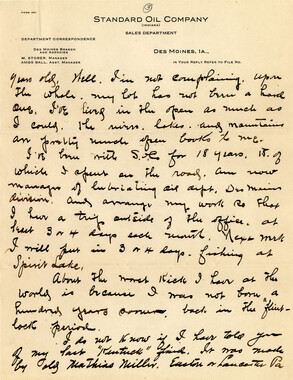 ③
STANDARD OIL COMPANY
(INDIANA)
SALES DEPARTMENT
DEPARTMENT CORRESPONDENCE
DES MOINES BRANCH
AND AGENCIES
M. STORER, MANAGER
AMOS BALL, ASST. MANAGER
DES MOINES, IA.,
IN YOUR REPLY REFER TO FILE NO.
years old. Well. I'm not complaining. Upon
the whole. my lot has not been a hard
one. I've lived in the open as much as
I could. The rivers. lakes. and mountains
are pretty much open books to me.
I've been with S.O. for 18 years, 15. of
which I spent on the road. Am now
manager of lubricating oil dept. Des Moines
division. And arrange my work so that
I have a trip outside of the office. at
least 3 or 4 days each month. Next week
I will put in 3 or 4 days. fishing at
Spirit Lake.
About the worst kick I have at the
world is because I was not born, a
hundred years sooner. back in the flint-
lock period.
I do not know if I have told you
of my last "Kentuck" find. It was made
by old Mathias Miller. Easton or Lancaster Pa